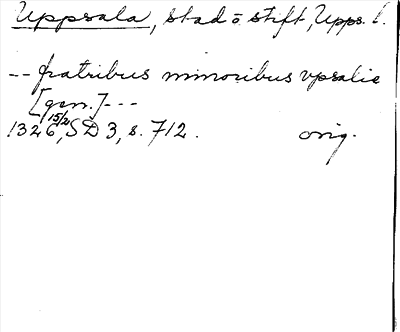 Uppsala, stad o stift, Upps. l.
-- fratribus minoribus vpsalie
[gen.] ---
1326 15/2, SD 3, s. 712. orig.